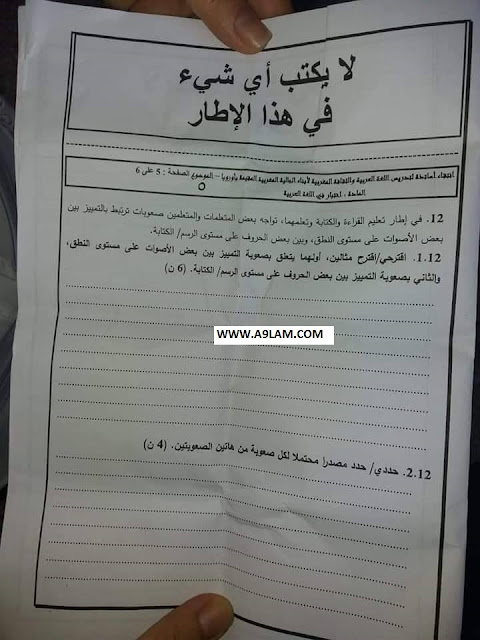 لا يكتب أي شيء
في هذا الإطار
انتقاء أساتذة لتدريس اللغة العربية والثقافة المغربية لأبناء الجالية المغربية المقيمة بأوروبا – الموضوع الصفحة : 5 على 6
المادة : اختبار في اللغة العربية
12. في إطار تعليم القراءة والكتابة وتعلمهما، تواجه بعض المتعلمات والمتعلمين صعوبات ترتبط بالتمييز بين
بعض الأصوات على مستوى النطق، وبين بعض الحروف على مستوى الرسم/ الكتابة.
1.12. اقترحي/اقترح مثالين، أولهما يتعلق بصعوبة التمييز بين بعض الأصوات على مستوى النطق،
والثاني بصعوبة التمييز بين بعض الحروف على مستوى الرسم/ الكتابة. (6 ن)
WWW.A9LAM.COM
2.12. حددي/ حدد مصدرا محتملا لكل صعوبة من هاتين الصعوبتين. (4 ن)